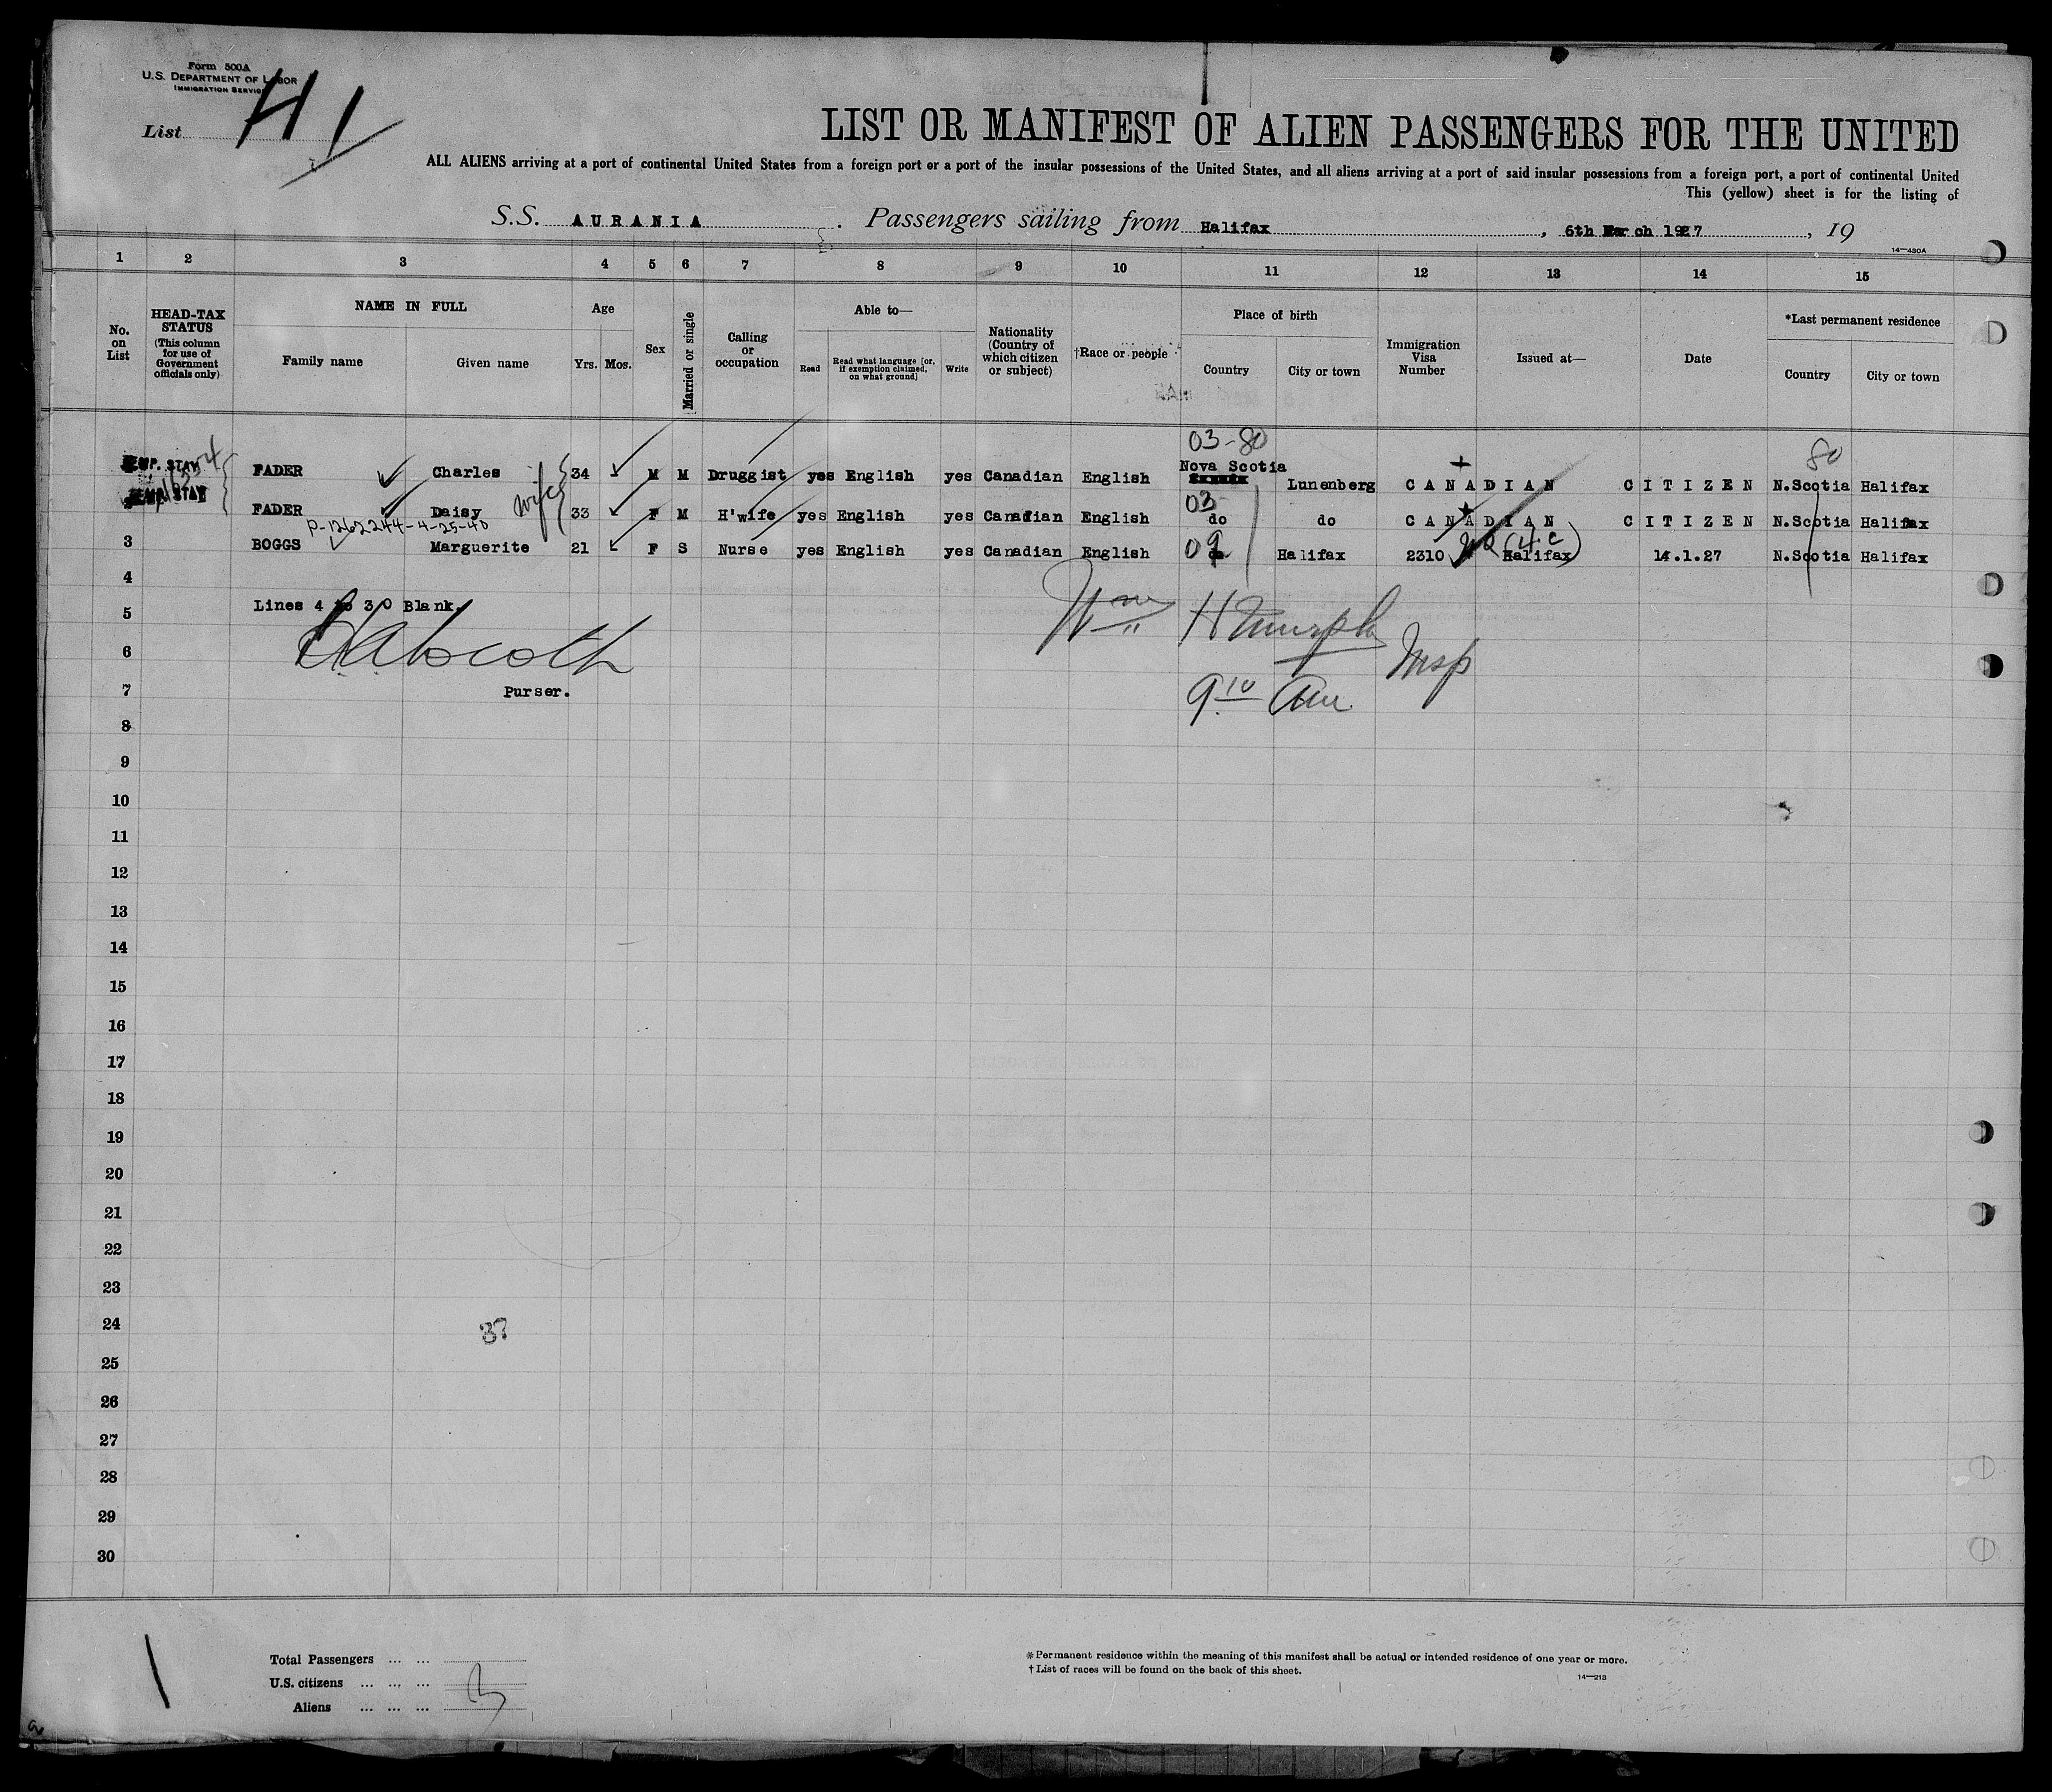 Form 500A
U.S. DEPARTMENT OF LABOR
IMMIGRATION SERVICE
List H 1
LIST OR MANIFEST OF ALIEN PASSENGERS FOR THE UNITED
ALL ALIENS arriving at a port of continental United States from a foreign port or a port of the insular possessions of the United States, and all aliens arriving at a port of said insular possessions from a foreign port, a port of continental United
This (yellow) sheet is for the listing of
S.S. AURANIA. Passengers sailing from Halifax, 6th March 1927, 19
14—430A
1 2 3 4 5 6 7 8 9 10 11 12 13 14 15
No. on List
HEAD-TAX STATUS (This column for use of Government officials only)
NAME IN FULL
Family name Given name
Age
Yrs. Mos.
Sex
Married or single
Calling or occupation
Able to—
Read
Read what language [or, if exemption claimed, on what ground]
Write
Nationality (Country of which citizen or subject)
†Race or people
Place of birth
Country City or town
Immigration Visa Number
Issued at—
Date
*Last permanent residence
Country City or town
03-80
80
TEMP. STAY FADER Charles 34 M M Druggist yes English yes Canadian English Nova Scotia Lunenberg CANADIAN CITIZEN N.Scotia Halifax
wife
03
TEMP. STAY FADER Daisy 33 F M H'wife yes English yes Canadian English do do CANADIAN CITIZEN N.Scotia Halifax
P-1262244-4-25-40
3 BOGGS Marguerite 21 F S Nurse yes English yes Canadian English 09 Halifax 2310 (4c) Halifax 14.1.27 N.Scotia Halifax
4
Lines 4 to 30 Blank.
5
Wm H Murphy
6
Insp
7
Purser.
9 10 Am
8
9
10
11
12
13
14
15
16
17
18
19
20
21
22
23
24
37
25
26
27
28
29
30
Total Passengers
U.S. citizens
3
Aliens
*Permanent residence within the meaning of this manifest shall be actual or intended residence of one year or more.
†List of races will be found on the back of this sheet.
14—213